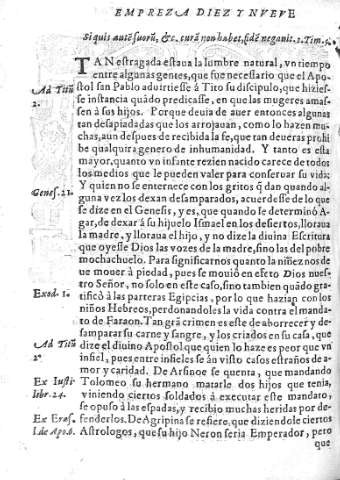 EMPREZA DIEZ Y NVEVE
Si quis autē suorū, &c. curā non habet, fidē negauit. 1. Tim. 5.
TAN estragada estaua la lumbre natural, vn tiempo
entre algunas gentes, que fue necessario que el Apo-
Ad Titū stol san Pablo aduirtiesse à Tito su discipulo, que hizies-
2. se instancia quādo predicasse, en que las mugeres amas-
sen à sus hijos. Porque deuia de auer entonces algunas
tan desapiadadas que los arrojauan, como lo hazen mu-
chas, aun despues de recibida la fe, que tan deueras prohi
be qualquira genero de inhumanidad. Y tanto es esta
mayor, quanto vn infante rezien nacido carece de todos
los medios que le pueden valer para conseruar su vida:
Y quien no se enternece con los gritos q̃ dan quando al-
Genes. 21. guna vez los dexan desamparados, acuerdesse de lo que
se dize en el Genesis, y es, que quando se determinó A-
gar, de dexar à su hijuelo Ismael en los desiertos, lloraua
la madre, y lloraua el hijo, y no dize la diuina Escritura
que oyesse Dios las vozes de la madre, sino las del pobre
mochachuelo. Para significarnos quanto la niñez nos de
ue mouer à piedad, pues se mouió en efeto Dios nues-
tro Señor, no solo en este caso, sino tambien quādo gra-
Exod. 1. tificó à las parteras Egipcias, por lo que hazian con los
niños Hebreos, perdonandoles la vida contra el manda-
to de Faraon. Tan grā crimen es este de aborrecer y de-
samparar su carne y sangre, y los criados en su casa, que
Ad Titū dize el diuino Apostol, que quien lo haze es peor que vn
2. infiel, pues entre infieles se àn visto casos estraños de a-
mor y caridad. De Arsinoe se quenta, que mandando
Ex Iusti Tolomeo su hermano matarle dos hijos que tenia,
libr. 24. viniendo ciertos soldados à executar este mandato,
se opuso à las espadas, y recibio muchas heridas por de-
Ex Eras. fenderlos. De Agripina se refiere, que diziendole ciertos
Lib. Apo. 8. Astrologos, que su hijo Neron seria Emperador, pero
que